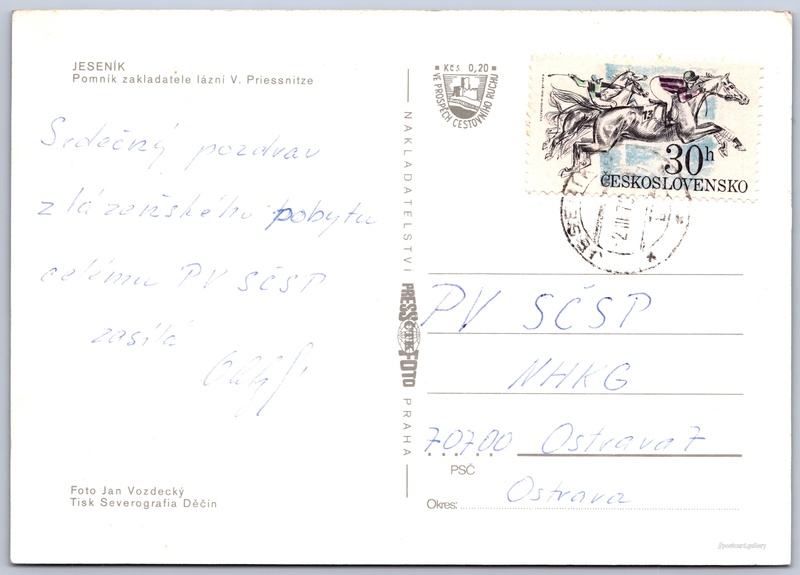 JESENÍK
Pomník zakladatele lázní V. Priessnitze
Srdečný pozdrav
z lázeňského pobytu
celému PV SČSP
zasílá
Foto Jan Vozdecký
Tisk Severografia Děčín
NAKLADATELSTVÍ PRESSFOTO PRAHA
ČTK
Kčs 0,20
VE PROSPĚCH CESTOVNÍHO RUCHU
13
30h
ČESKOSLOVENSKO
PV SČSP
NHKG
70700 Ostrava 7
PSČ
Ostrava
Okres:
postcard.gallery